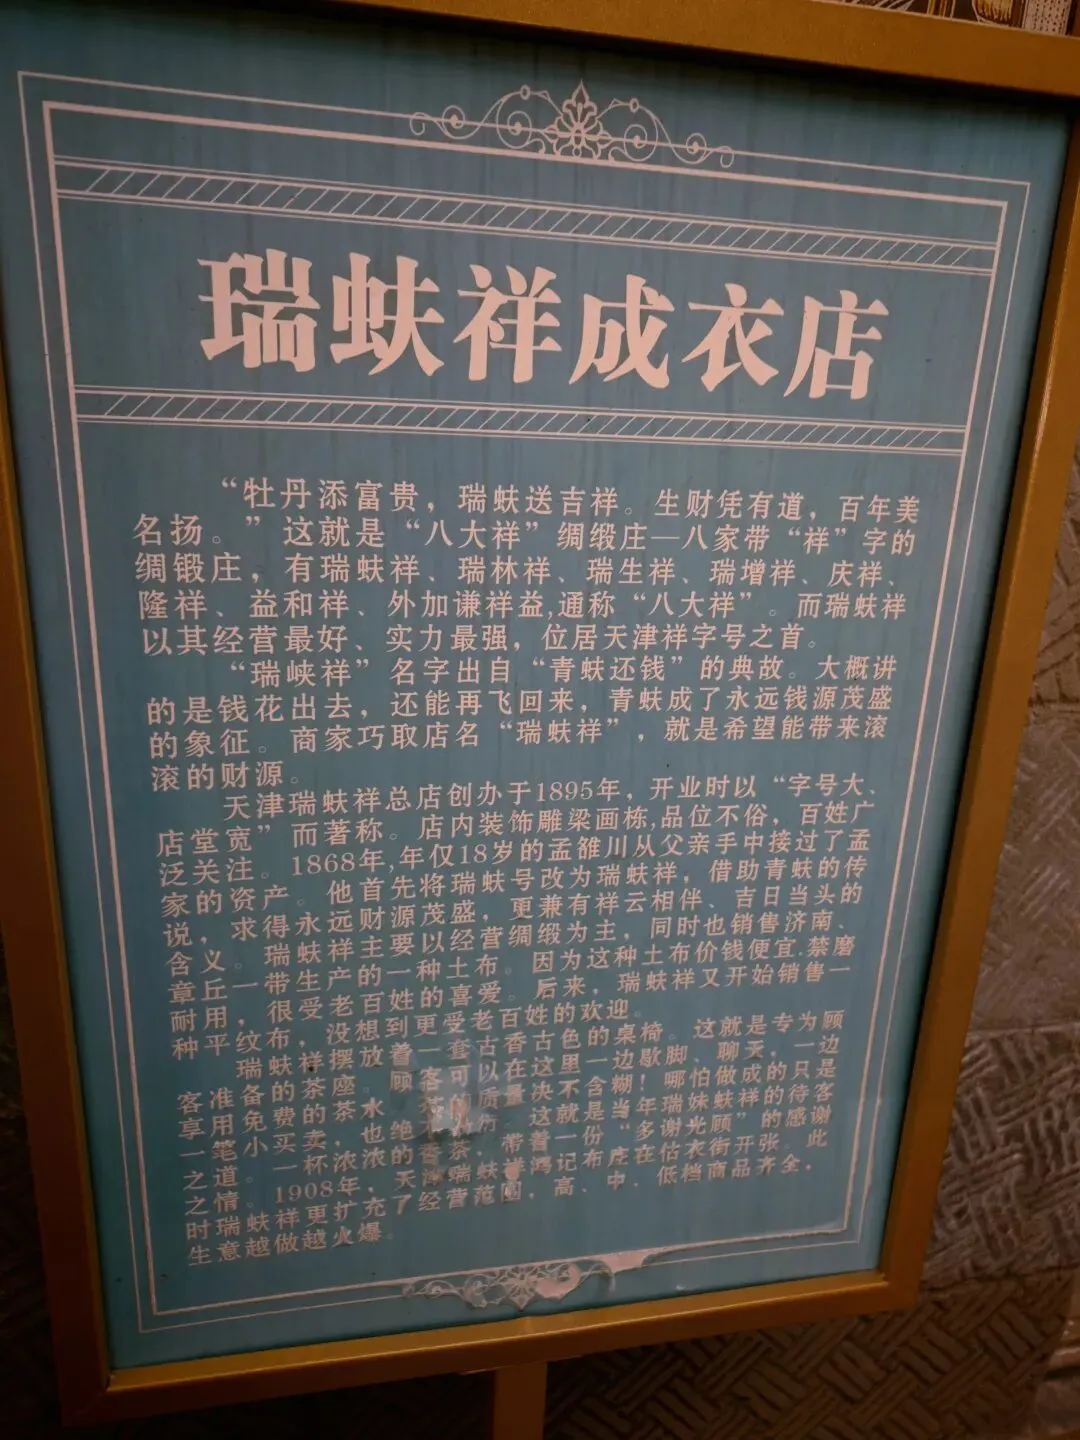 瑞蚨祥成衣店
“牡丹添富贵，瑞蚨送吉祥。生财凭有道，百年美
名扬。”这就是“八大祥”绸缎庄—八家带“祥”字的
绸锻庄，有瑞蚨祥、瑞林祥、瑞生祥、瑞增祥、庆祥、
隆祥、益和祥、外加谦祥益,通称“八大祥”。而瑞蚨祥
以其经营最好、实力最强，位居天津祥字号之首。
“瑞峡祥”名字出自“青蚨还钱”的典故。大概讲
的是钱花出去，还能再飞回来，青蚨成了永远钱源茂盛
的象征。商家巧取店名“瑞蚨祥”，就是希望能带来滚
滚的财源。
天津瑞蚨祥总店创办于1895年，开业时以“字号大、
店堂宽”而著称。店内装饰雕梁画栋,品位不俗，百姓广
泛关注。1868年,年仅18岁的孟雒川从父亲手中接过了孟
家的资产。他首先将瑞蚨号改为瑞蚨祥，借助青蚨的传
说，求得永远财源茂盛，更兼有祥云相伴、吉日当头的
含义。瑞蚨祥主要以经营绸缎为主，同时也销售济南、
章丘一带生产的一种土布。因为这种土布价钱便宜.禁磨
耐用，很受老百姓的喜爱。后来，瑞蚨祥又开始销售一
种平纹布，没想到更受老百姓的欢迎。
瑞蚨祥摆放着一套古香古色的桌椅。这就是专为顾
客准备的茶座。顾客可以在这里一边歇脚、聊天，一边
享用免费的茶水。茶的质量决不含糊！哪怕做成的只是
一笔小买卖，也绝 这就是当年瑞妹蚨祥的待客
之道。一杯浓浓的香茶，带着一份“多谢光顾”的感谢
之情。1908年，天津瑞蚨祥鸿记布庄在估衣街开张。此
时瑞蚨祥更扩充了经营范围，高、中、低档商品齐全，
生意越做越火爆。